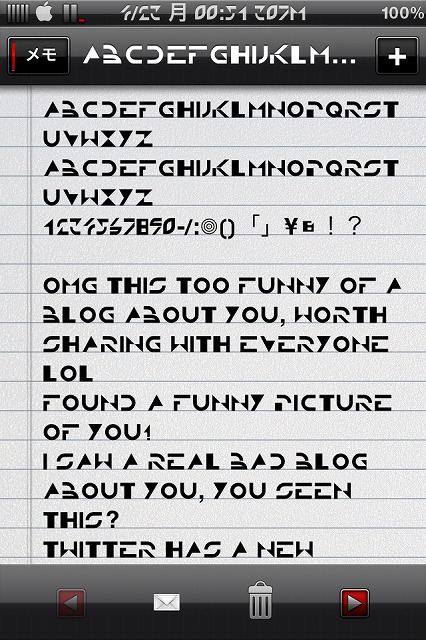 月 100%
メモ ABCDEFGHIJKLM... +
ABCDEFGHIJKLMNOPQRST
UVWXYZ
ABCDEFGHIJKLMNOPQRST
UVWXYZ
1234567890-/:◎()「」¥B！？
OMG THIS TOO FUNNY OF A
BLOG ABOUT YOU, WORTH
SHARING WITH EVERYONE
LOL
FOUND A FUNNY PICTURE
OF YOU!
I SAW A REAL BAD BLOG
ABOUT YOU, YOU SEEN
THIS?
TWITTER HAS A NEW